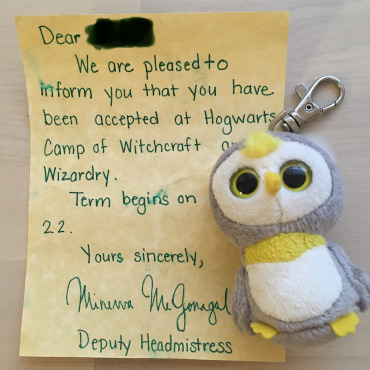 Dear
We are pleased to
inform you that you have
been accepted at Hogwarts
Camp of Witchcraft
Wizardry.
Term begins on
22.
Yours sincerely,
Minerva McGonagal
Deputy Headmistress